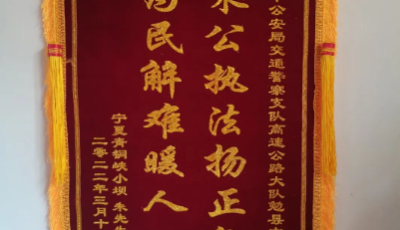 公安局交通警察支队高速公路大队勉县
公执法扬正
民解难暖人
宁夏青铜峡小坝 朱先生
二零二二年三月十